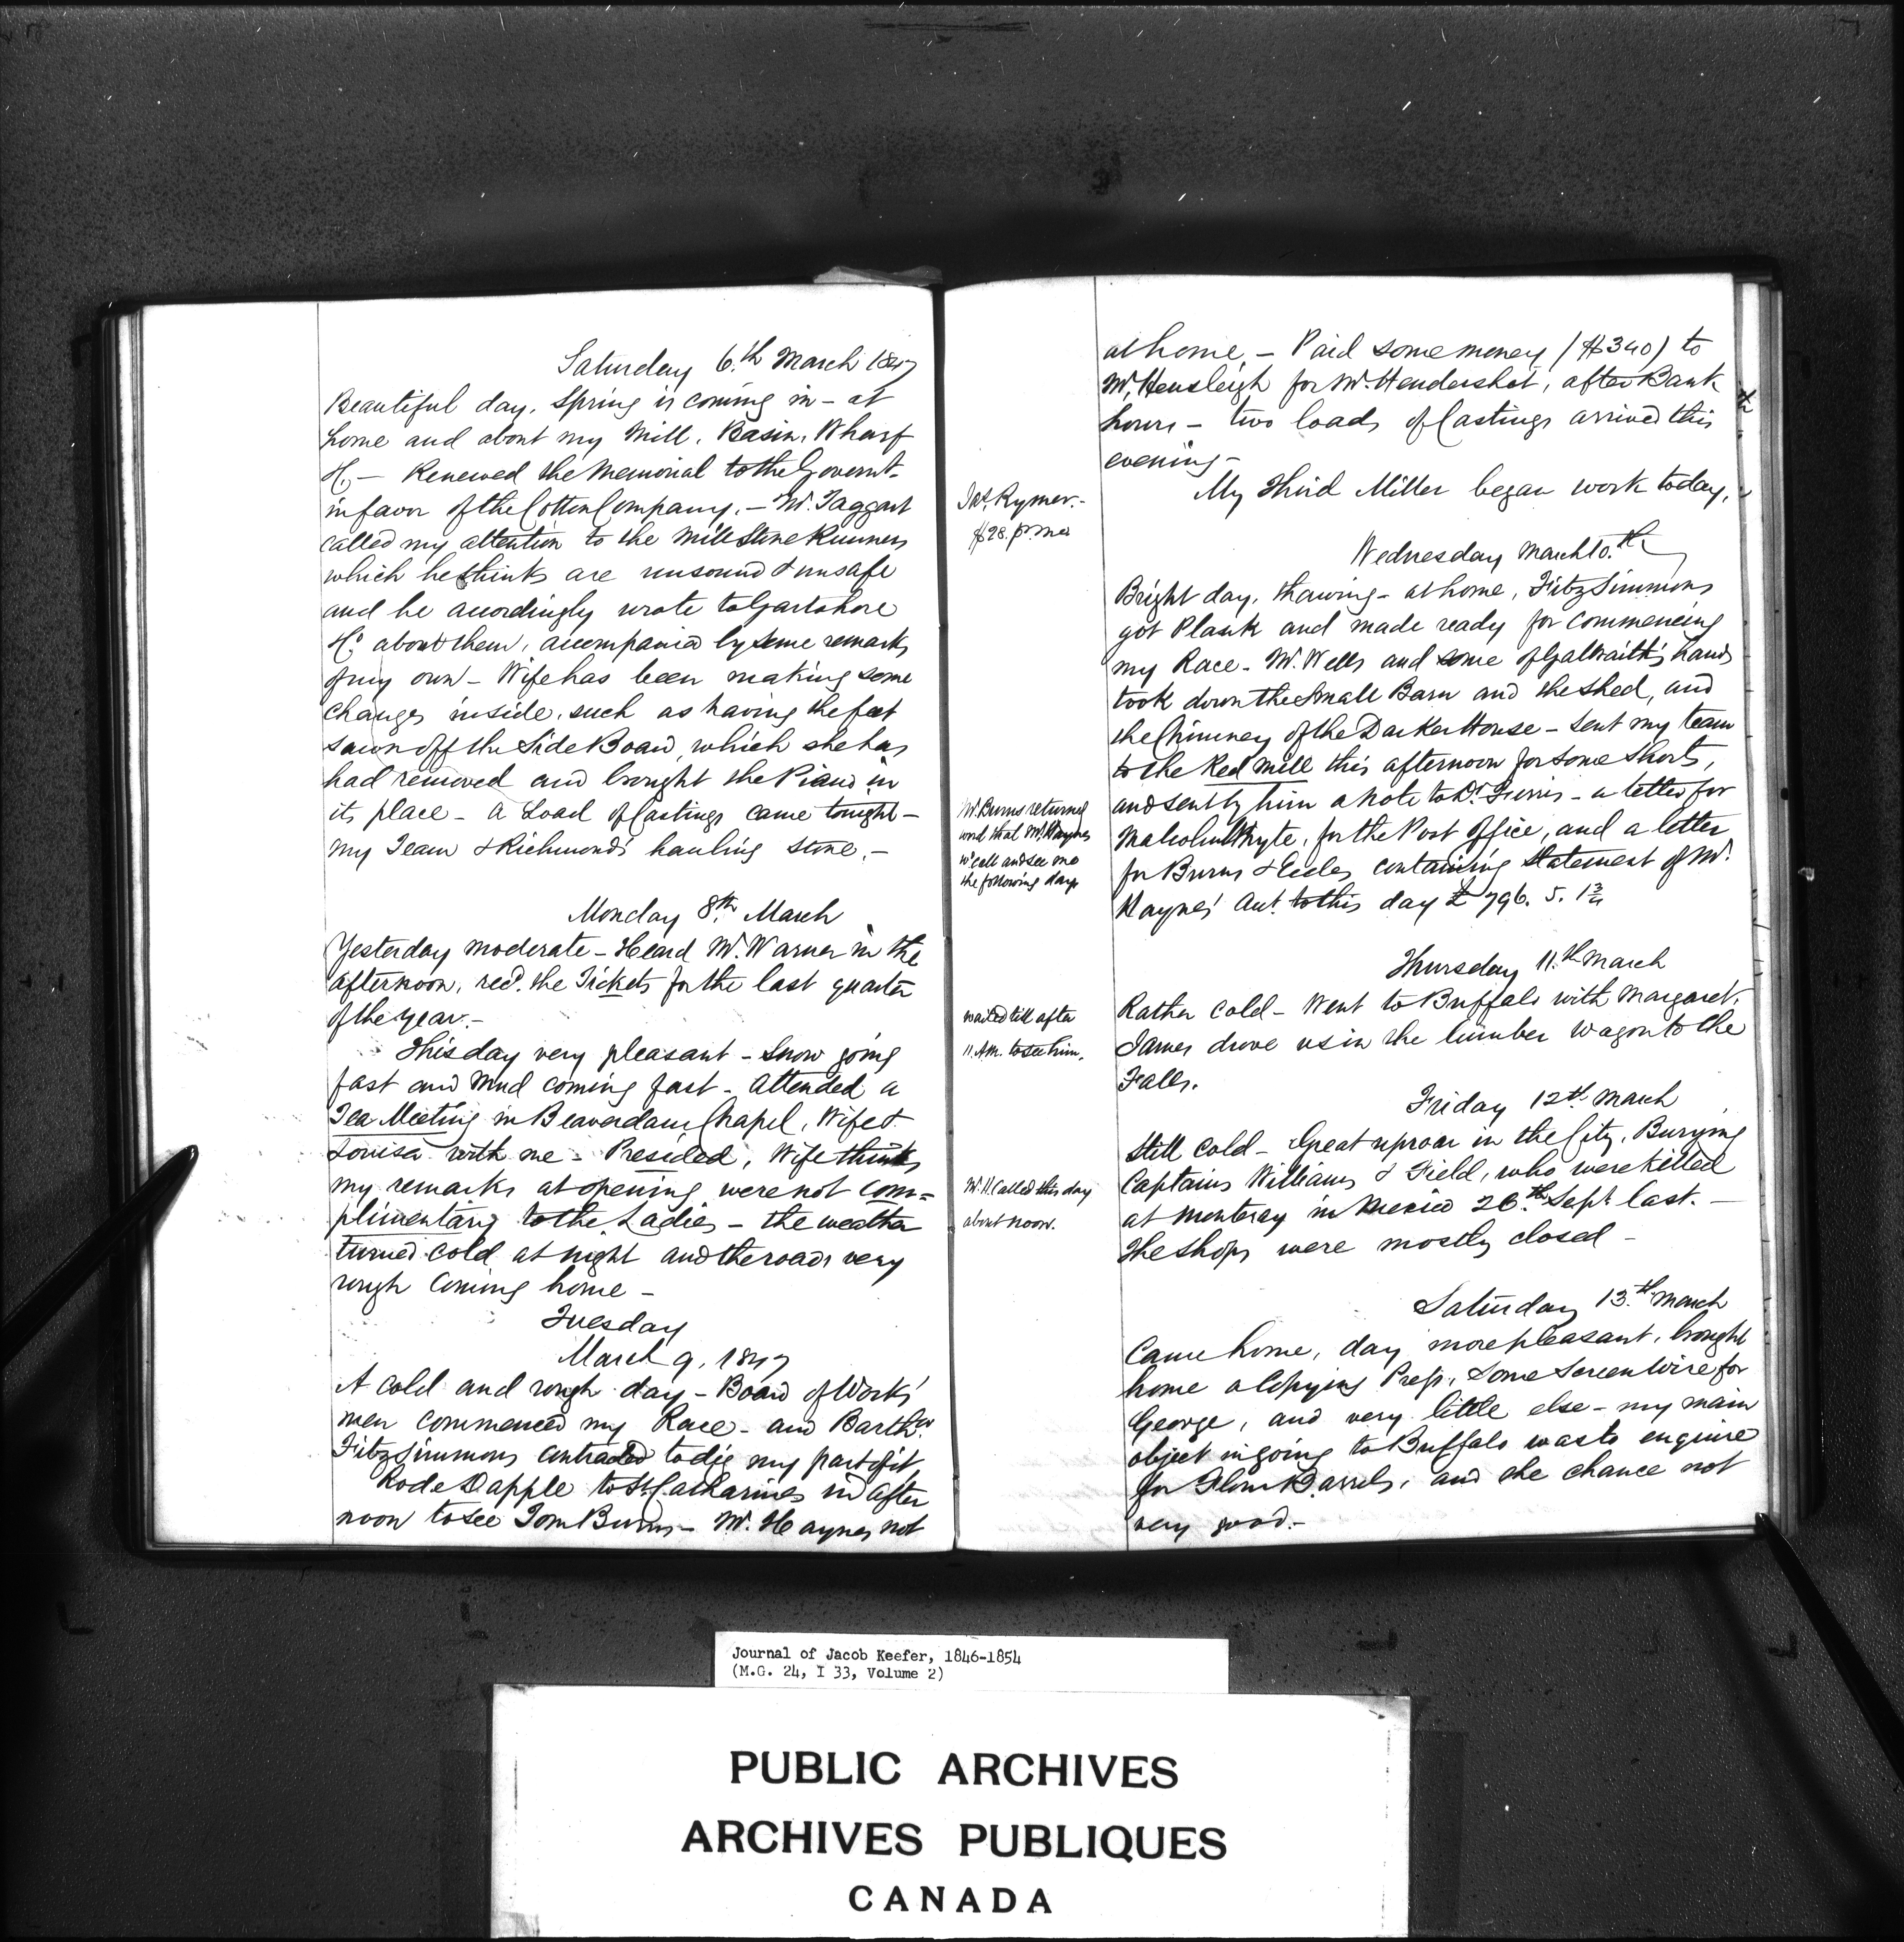 Saturday 6th March 1847
Beautiful day, Spring is coming in - at
home and about my Mill, Basin, Wharf
&c - Renewed the Memorial to the Governt.
in favor of the Cotton Company. - Mr. Taggart
called my attention to the Mill Stone Runners
which he thinks are unsound & unsafe
and he accordingly wrote to Gartshore
&Co about them, accompanied by some remarks
of my own - Wife has been making some
changes inside, such as having the feet
sawn off the Side Board, which she has
had removed and brought the Piano in
its place - A Load of Castings came tonight -
My Team & Richmond's hauling stone. -
Monday 8th March
Yesterday moderate - Heard Mr. Warner in the
afternoon, recd. the Tickets for the last quarter
of the year. -
This day very pleasant - Snow going
fast and Mud coming fast - Attended a
Tea Meeting in Beaverdam Chapel, Wife &
Louisa with me - Presided, Wife thinks
my remarks at opening were not com=
plimentary to the Ladies - the weather
turned cold at night and the roads very
rough coming home -
Tuesday
March 9, 1847
A cold and rough day - Board of Works'
men commenced my Race - and Barthw.
FitzSimmons contracted to dig my part of it
Rode Dapple to St Catharines in after
noon to see Tom Burns - Mr. Haynes not
at home. - Paid some money ($340) to
Mr. Hensleigh for Mr. Hendershot, after Bank
hours - two loads of Castings arrived this
evening -
My Third Miller began work today,
Jas. Rymer. -
$28. pr. mo
Wednesday March 10th
Bright day, thawing - at home, FitzSimmons
got Plank and made ready for commencing
my Race - Mr. Wells and some of Galbraith's hands
took down the Small Barn and the shed, and
the Chimney of the Darker House - Sent my team
to the Red Mill this afternoon for some Shorts,
and sent by him a note to Dr. - a letter for
Malcolm Whyte, for the Post Office, and a letter
for Burns & Eccles containing Statement of Mr.
Haynes' Act. to this day £796. 5. 1¾
Mr. Burns returned
word that Mr. Haynes
wd. call and see me
the following day
Thursday 11th March
Rather cold - Went to Buffalo with Margaret.
James drove us in the lumber wagon to the
Falls.
waited till after
11 A.M. to see him.
Friday 12th March
Still cold - Great uproar in the City, Burying
Captains Williams & Field, who were killed
at Monteray in Mexico 26th Sept. last. -
The Shops were mostly closed -
Mr. H called this day
about noon.
Saturday 13th March
Came home, day more pleasant, brought
home a Copying Press, Some Screen Wire for
George, and very little else - my main
object in going to Buffalo was to enquire
for Flour Barrels, and the chance not
very good. -
Journal of Jacob Keefer, 1846-1854
(M.G. 24, I 33, Volume 2)
PUBLIC ARCHIVES
ARCHIVES PUBLIQUES
CANADA